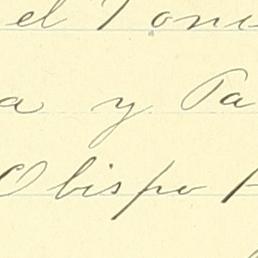 el Tone
a y Pa
Obispo